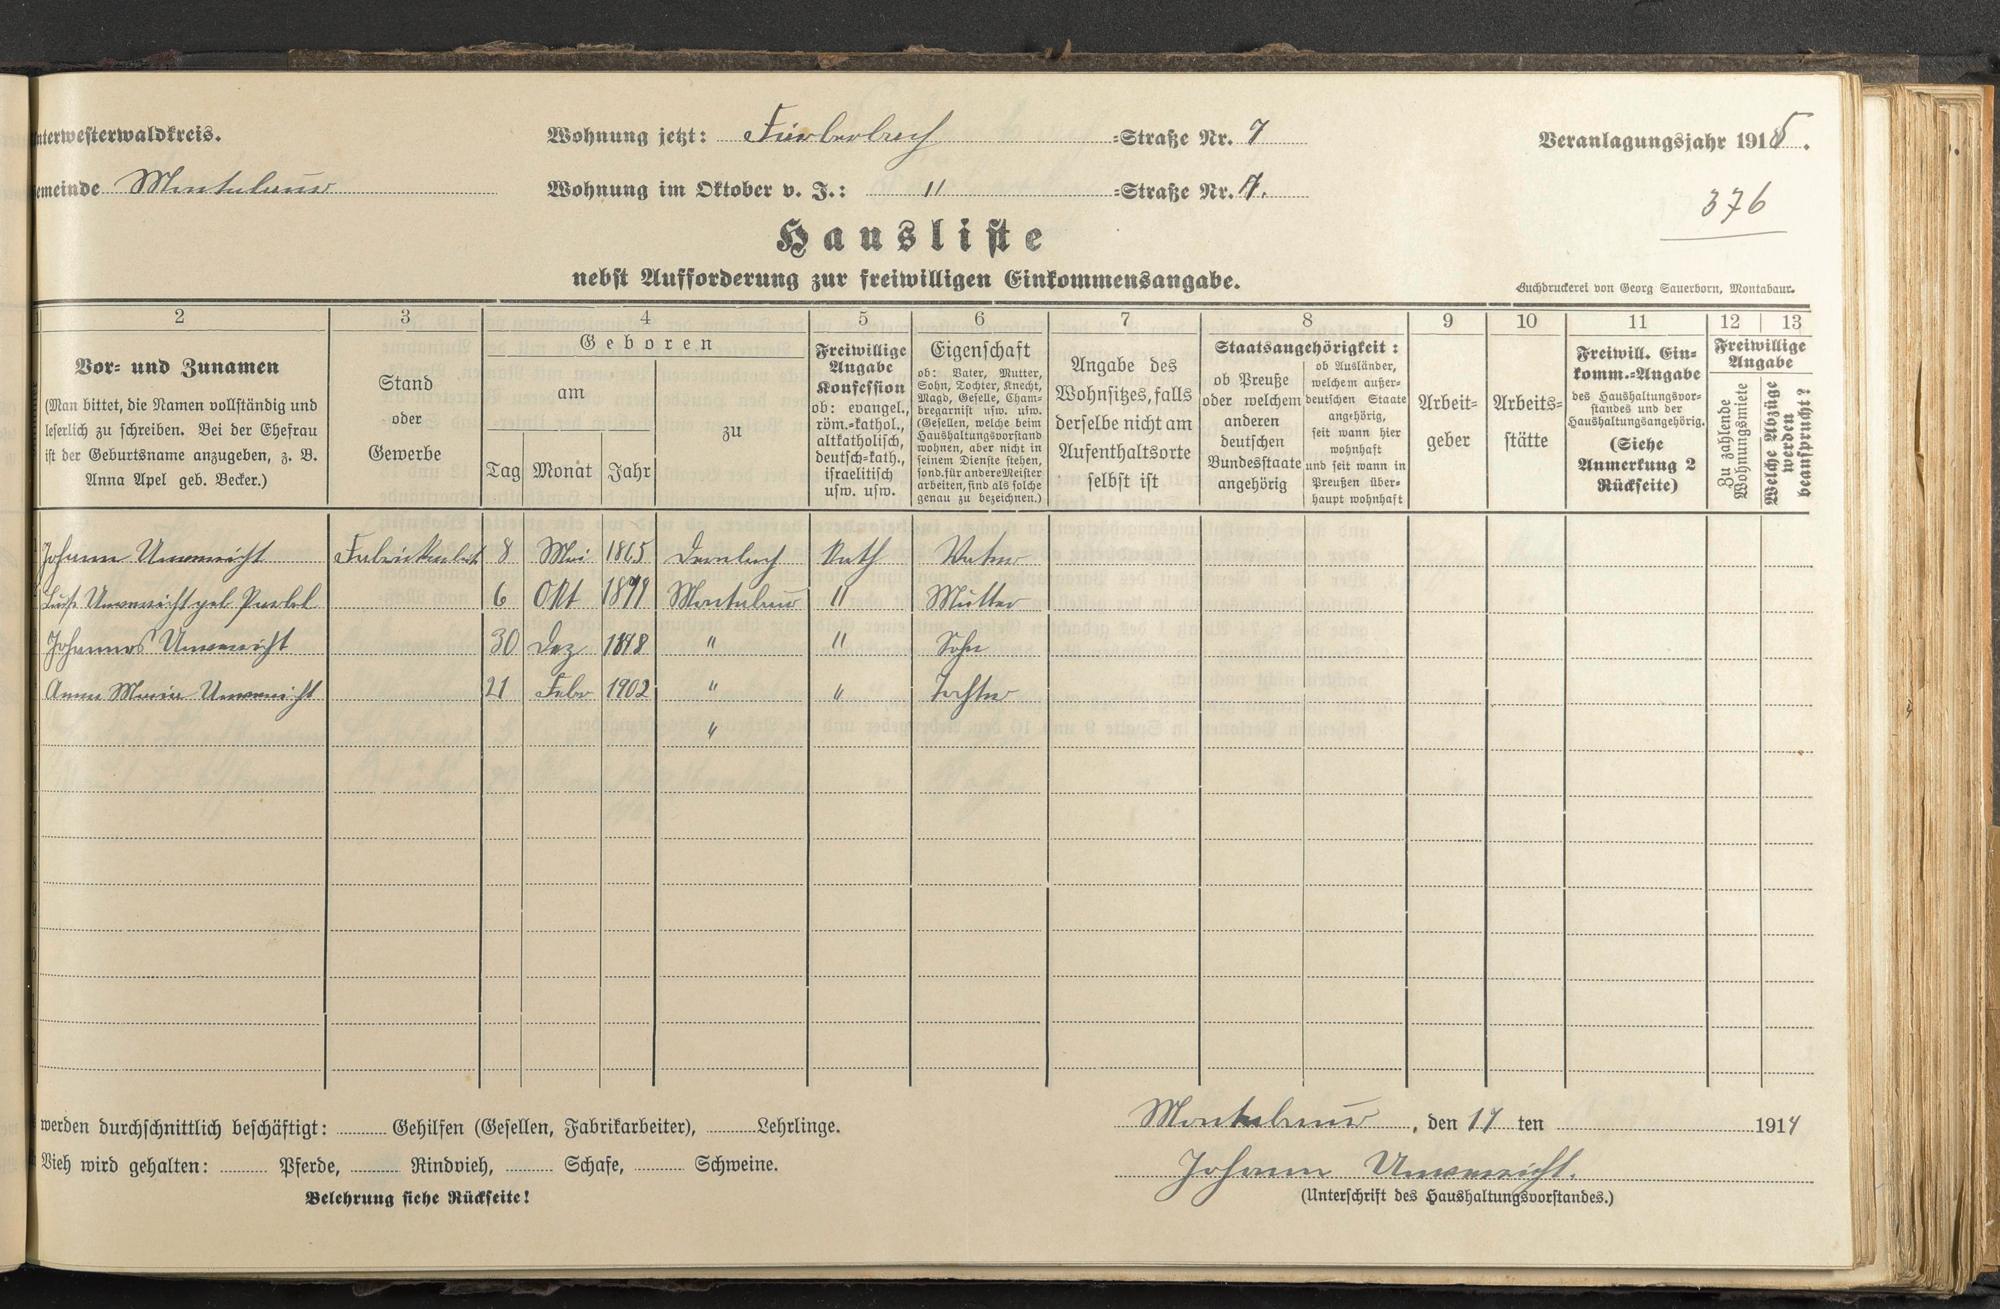 nterwesterwaldkreis.
Wohnung jetzt: Färberbach =Straße Nr. 7
Veranlagungsjahr 1915.
emeinde Montabaur
Wohnung im Oktober v. J.: " =Straße Nr. 7.
376
Hausliste
nebst Aufforderung zur freiwilligen Einkommensangabe.
Buchdruckerei von Georg Sauerborn, Montabaur.
2 3 4 5 6 7 8 9 10 11 12 13
Vor= und Zunamen
(Man bittet, die Namen vollständig und
leserlich zu schreiben. Bei der Ehefrau
ist der Geburtsname anzugeben, z. B.
Anna Apel geb. Becker.)
Stand
oder
Gewerbe
Geboren
am
Tag Monat Jahr
zu
Freiwillige
Angabe
Konfession
ob: evangel.,
röm.=kathol.,
altkatholisch,
deutsch=kath.,
israelitisch
usw. usw.
Eigenschaft
ob: Vater, Mutter,
Sohn, Tochter, Knecht,
Magd, Geselle, Cham=
bregarnist usw. usw.
(Gesellen, welche beim
Haushaltungsvorstand
wohnen, aber nicht in
seinem Dienste stehen,
sond. für andere Meister
arbeiten, sind als solche
genau zu bezeichnen.)
Angabe des
Wohnsitzes, falls
derselbe nicht am
Aufenthaltsorte
selbst ist
Staatsangehörigkeit:
ob Preuße
oder welchem
anderen
deutschen
Bundesstaate
angehörig
ob Ausländer,
welchem außer=
deutschen Staate
angehörig,
seit wann hier
wohnhaft
und seit wann in
Preußen über=
haupt wohnhaft
Arbeit=
geber
Arbeits=
stätte
Freiwill. Ein=
komm.=Angabe
des Haushaltungsvor=
standes und der
Haushaltungsangehörig.
(Siehe
Anmerkung 2
Rückseite)
Freiwillige
Angabe
Zu zahlende
Wohnungsmiete
Welche Abzüge
werden
beansprucht?
Johann Unverricht 8 Mai 1865 Dernbach Kath Vater
Unverricht geb 6 Okt Montabaur " Mutter
Johannes Unverricht 30 Dez 1898 " " Sohn
Anna Maria Unverricht 21 Febr 1902 " " Tochter
"
werden durchschnittlich beschäftigt: Gehilfen (Gesellen, Fabrikarbeiter), Lehrlinge.
Vieh wird gehalten: Pferde, Rindvieh, Schafe, Schweine.
Belehrung siehe Rückseite!
Montabaur, den 17 ten 1914
Johann Unverricht.
(Unterschrift des Haushaltungsvorstandes.)